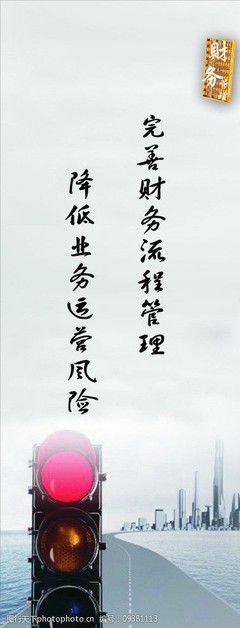 財务管理
完善财务流程管理
降低业务运营风险
图行天下 www.photophoto.cn 编号：09381113